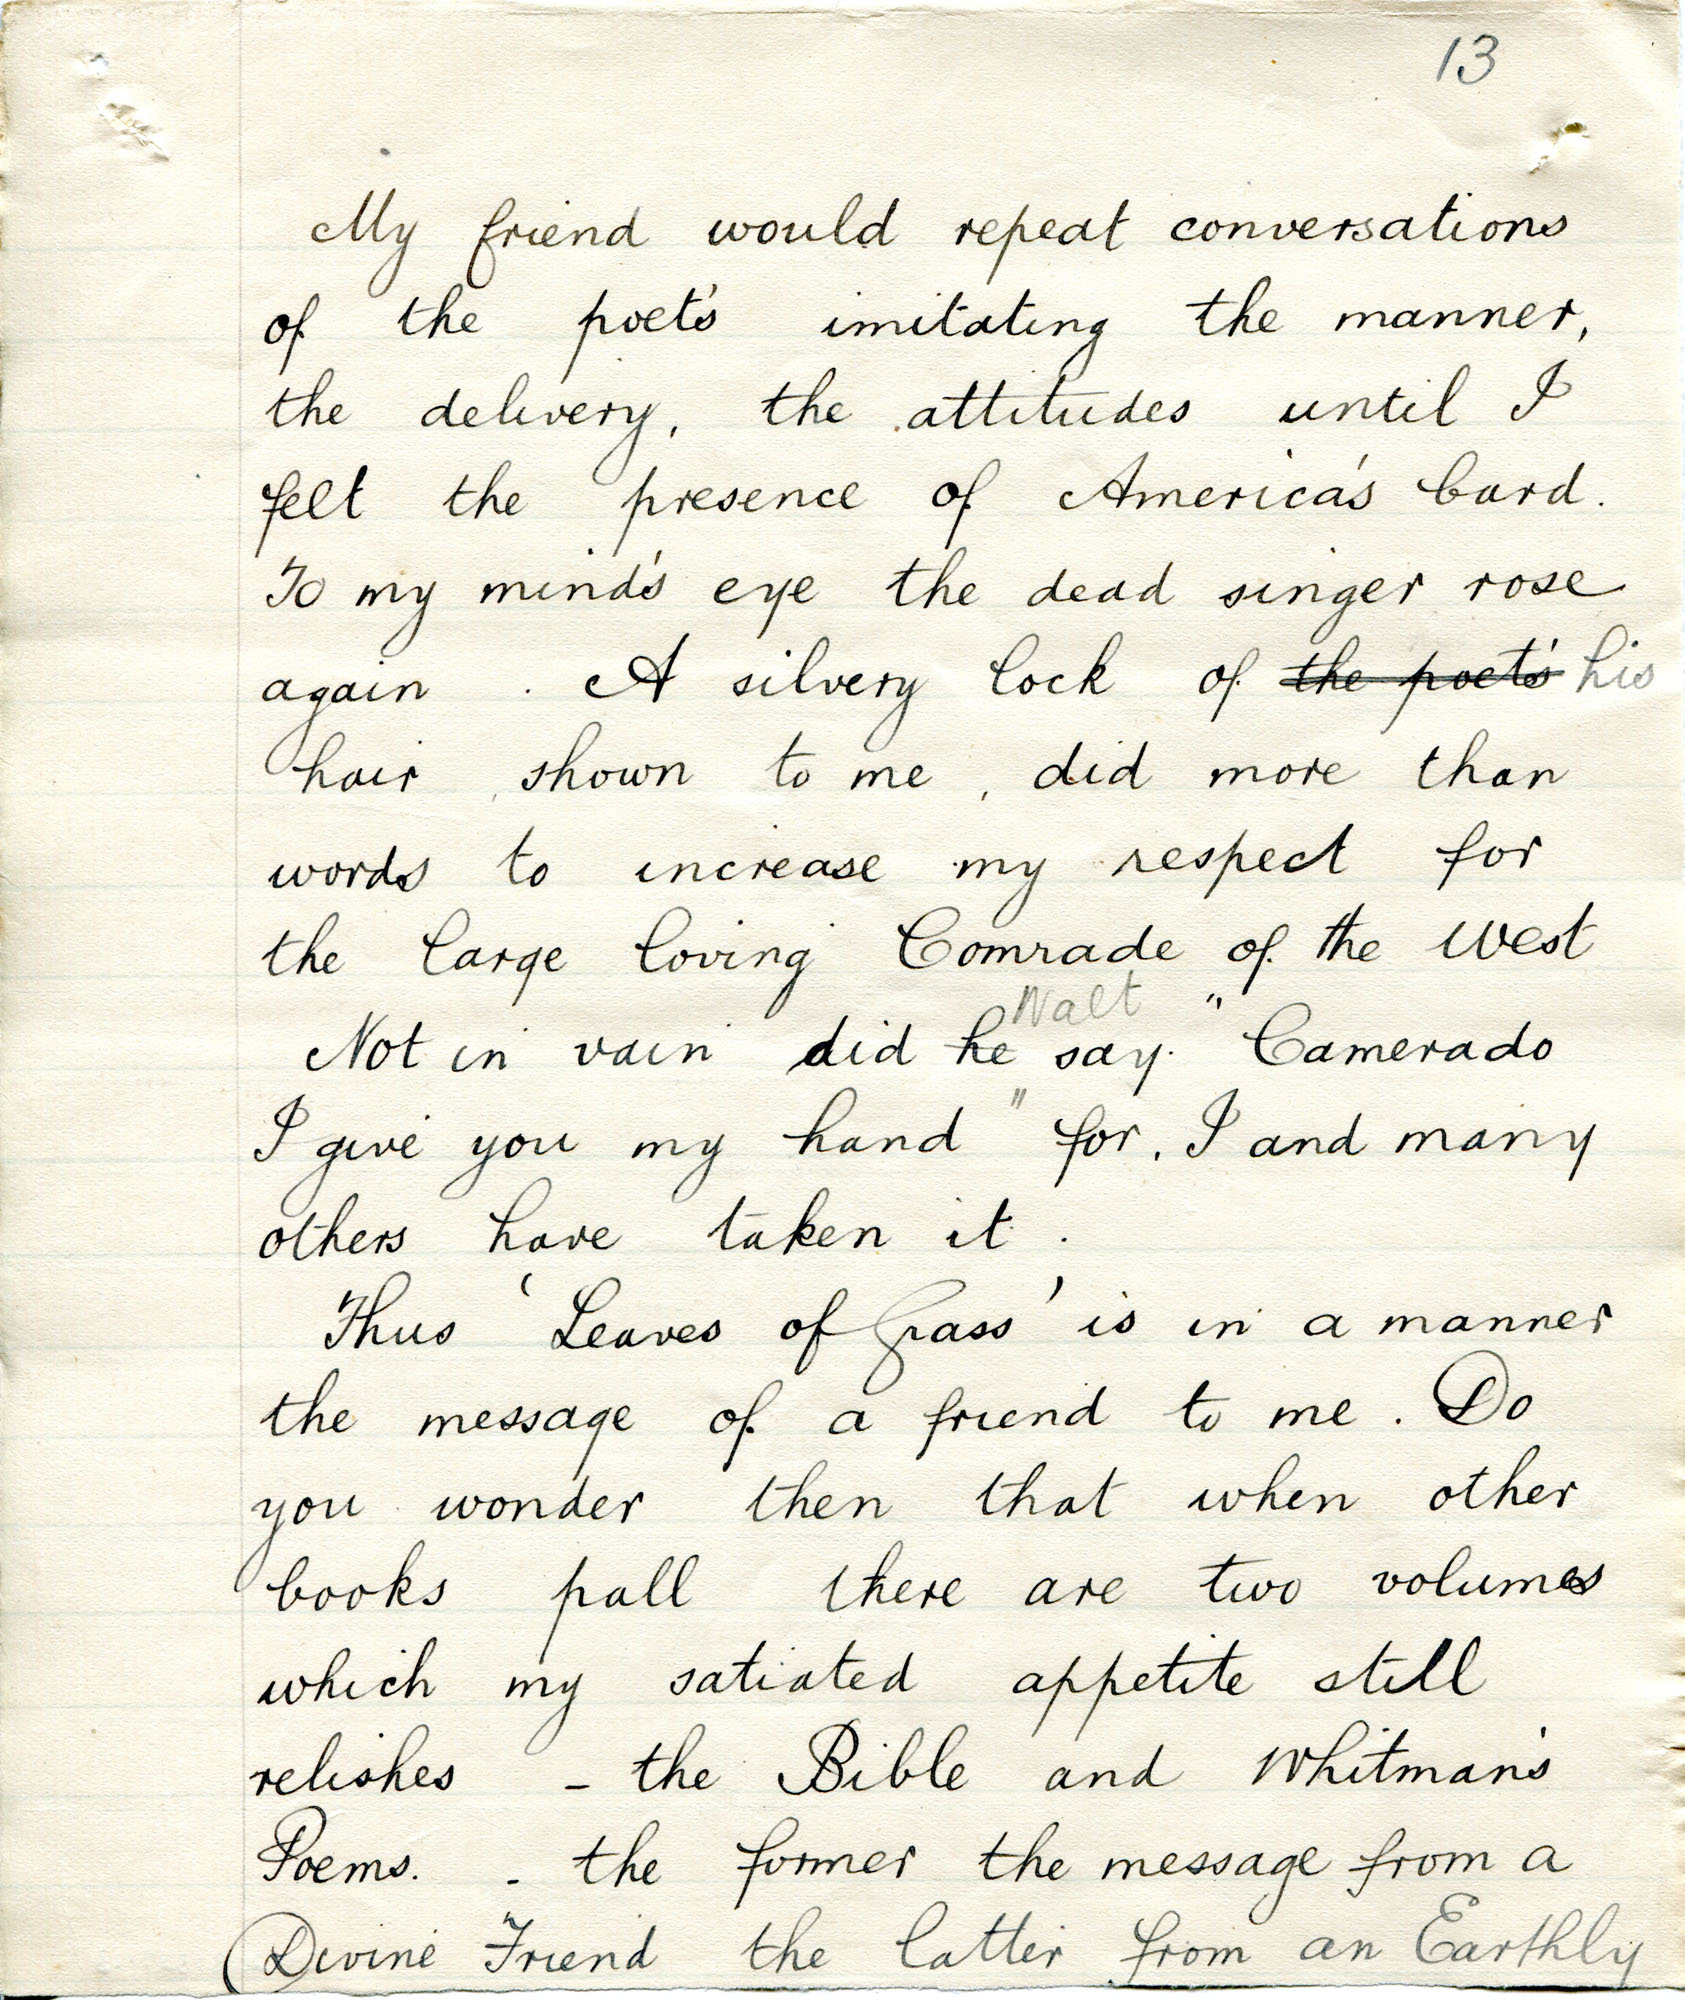 13
My friend would repeat conversations
of the poet's imitating the manner,
the delivery, the attitudes until I
felt the presence of America's bard.
To my mind's eye the dead singer rose
again. A silvery lock of the poet's his
hair, shown to me, did more than
words to increase my respect for
the large loving Comrade of the West
Walt
Not in vain did he say. "Camerado
I give you my hand" for, I and many
others have taken it.
Thus 'Leaves of Grass' is in a manner
the message of a friend to me. Do
you wonder then that when other
books pall there are two volumes
which my satiated appetite still
relishes - the Bible and Whitman's
Poems. - the former the message from a
Divine Friend the latter from an Earthly